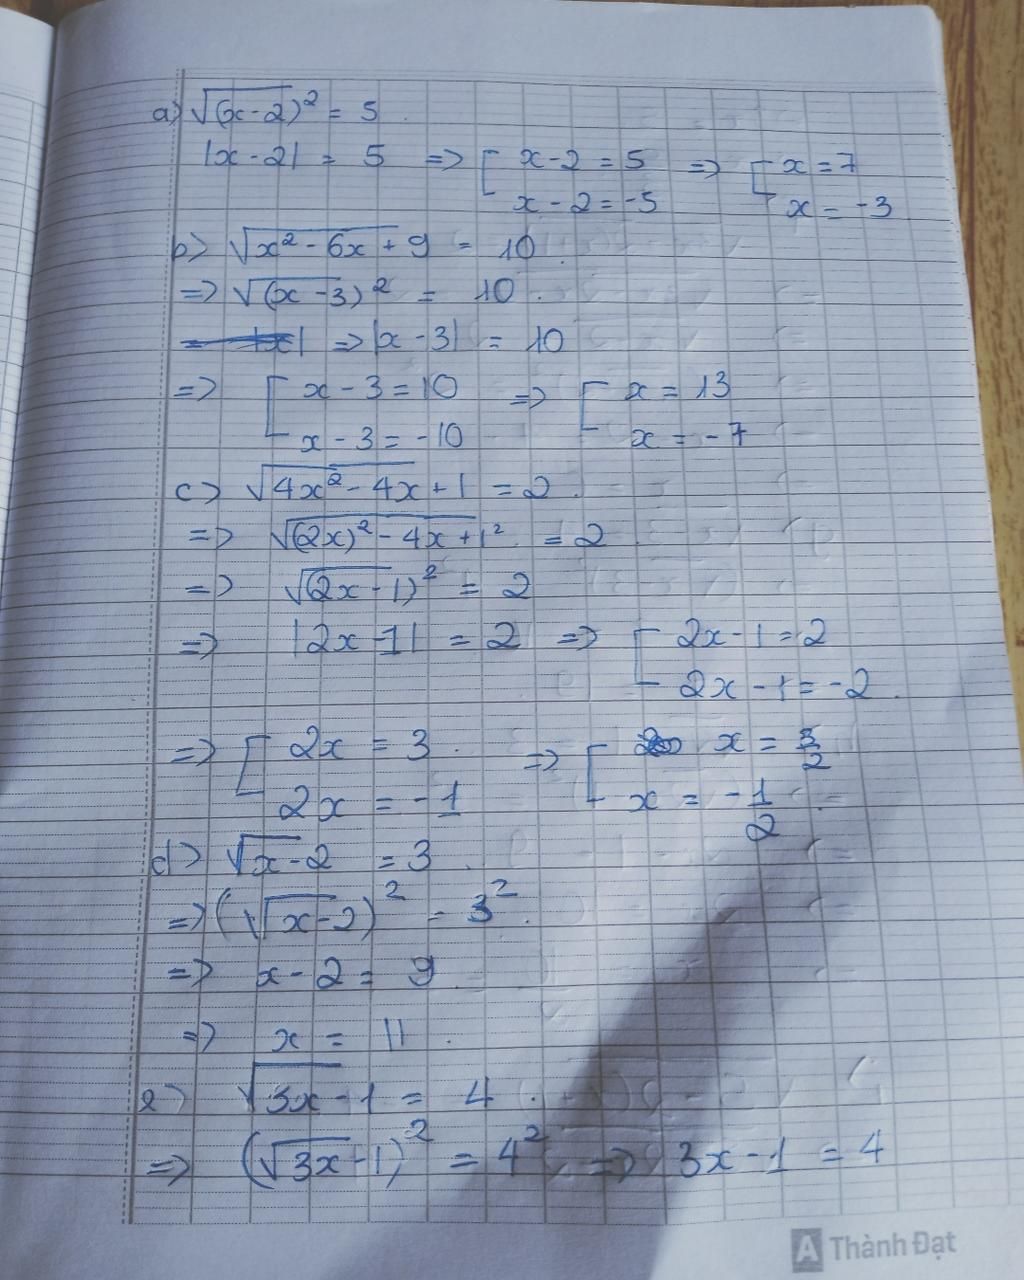 a) √(x-2)² = 5
|x-2| = 5 => [ x-2 = 5 => [ x = 7
x - 2 = -5 x = -3
b) √x² - 6x + 9 = 10
=> √(x-3)² = 10
=> |x-3| = 10
=> [ x - 3 = 10 => [ x = 13
x - 3 = -10 x = -7
c) √4x² - 4x + 1 = 2
=> √(2x)² - 4x + 1² = 2
=> √(2x-1)² = 2
=> |2x-1| = 2 => [ 2x-1 = 2
2x - 1 = -2
=> [ 2x = 3 => [ x = 3/2
2x = -1 x = -1/2
d) √x-2 = 3
=> (√x-2)² = 3²
=> x-2 = 9
=> x = 11
e) √3x-1 = 4
=> (√3x-1)² = 4² => 3x-1 = 4
A Thành Đạt